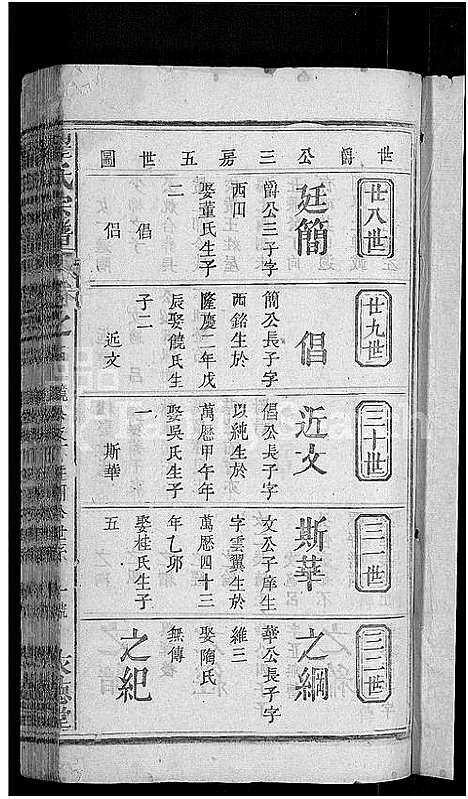 世爵公三房五世圖
廿八世
廷簡
爵公三子字
西田
娶董氏生子
二
倡
侶
廿九世
倡
簡公長子字
西銘生於
隆慶二年戊
辰娶饒氏生
子二
近文
三十世
近文
倡公長子字
以純生於
萬厯甲午年
娶吳氏生子
一
斯華
三一世
斯華
文公子庠生
字雲翼生於
萬厯四十三
年乙卯
娶桂氏生子
五
三二世
之綱
華公長子字
維三
娶陶氏
無傳
之紀
氏宗譜